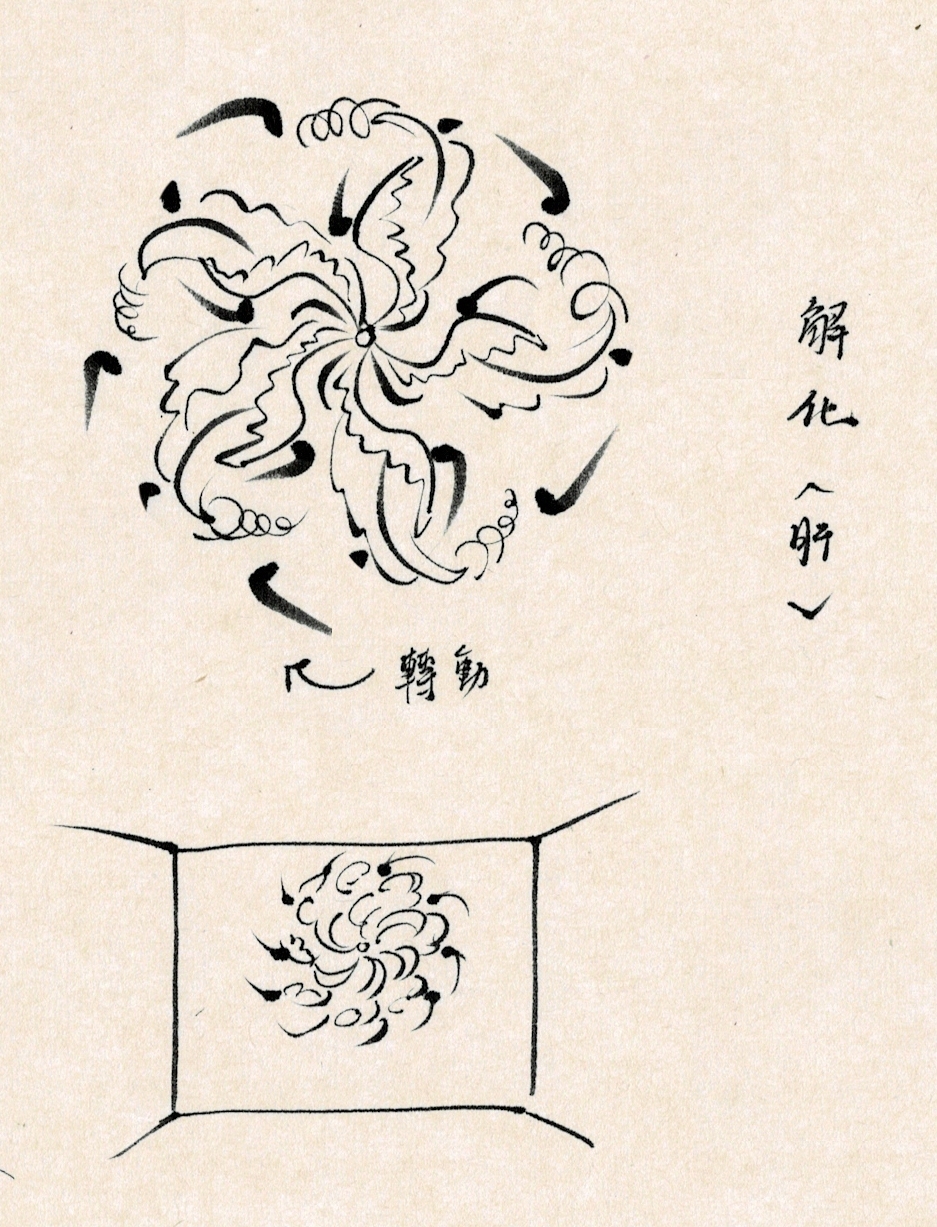 解化（肝）
轉動